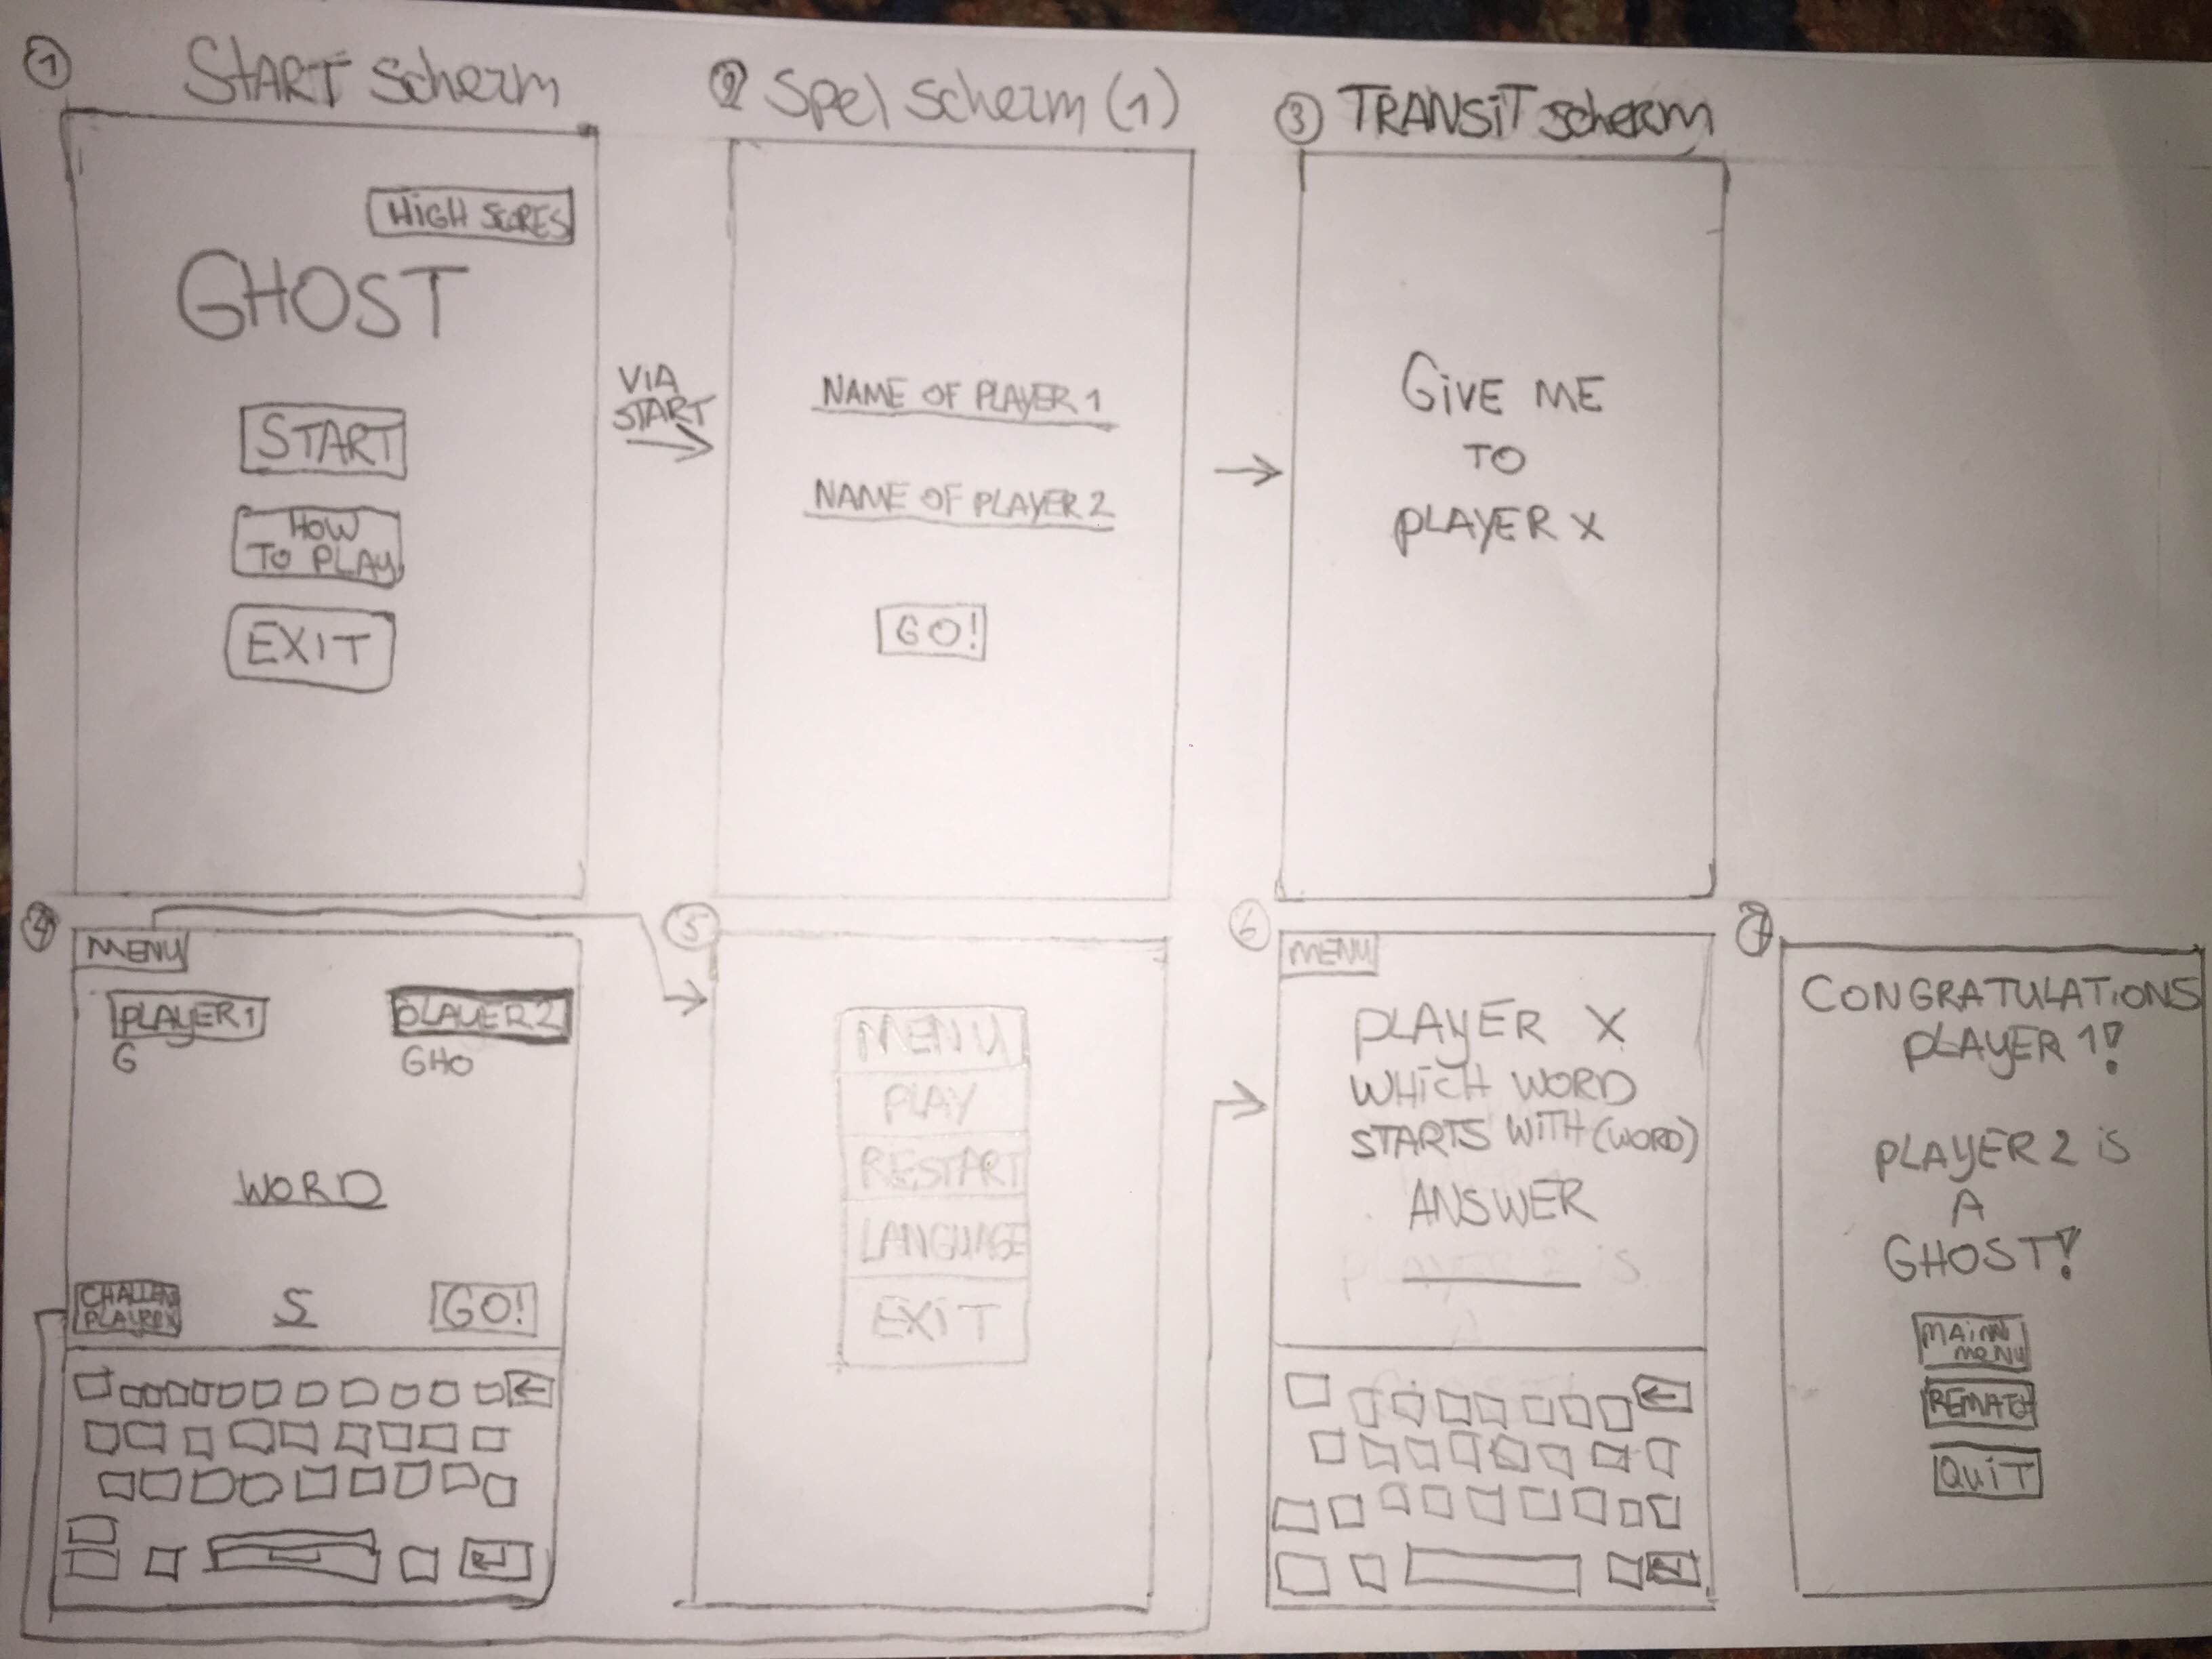 ① START Scherm
HIGH SCORES
GHOST
START
HOW
TO PLAY
EXIT
VIA
START
② Spel Scherm (1)
NAME OF PLAYER 1
NAME OF PLAYER 2
GO!
③ TRANSIT scherm
GIVE ME
TO
PLAYER X
④
MENU
PLAYER 1
G
PLAYER 2
GHO
WORD
S
GO!
⑤
MENU
PLAY
RESTART
LANGUAGE
EXIT
⑥
MENU
PLAYER X
WHICH WORD
STARTS WITH (WORD)
ANSWER
⑦
CONGRATULATIONS
PLAYER 1!
PLAYER 2 is
A
GHOST!
MAIN
MENU
REMATCH
QUIT